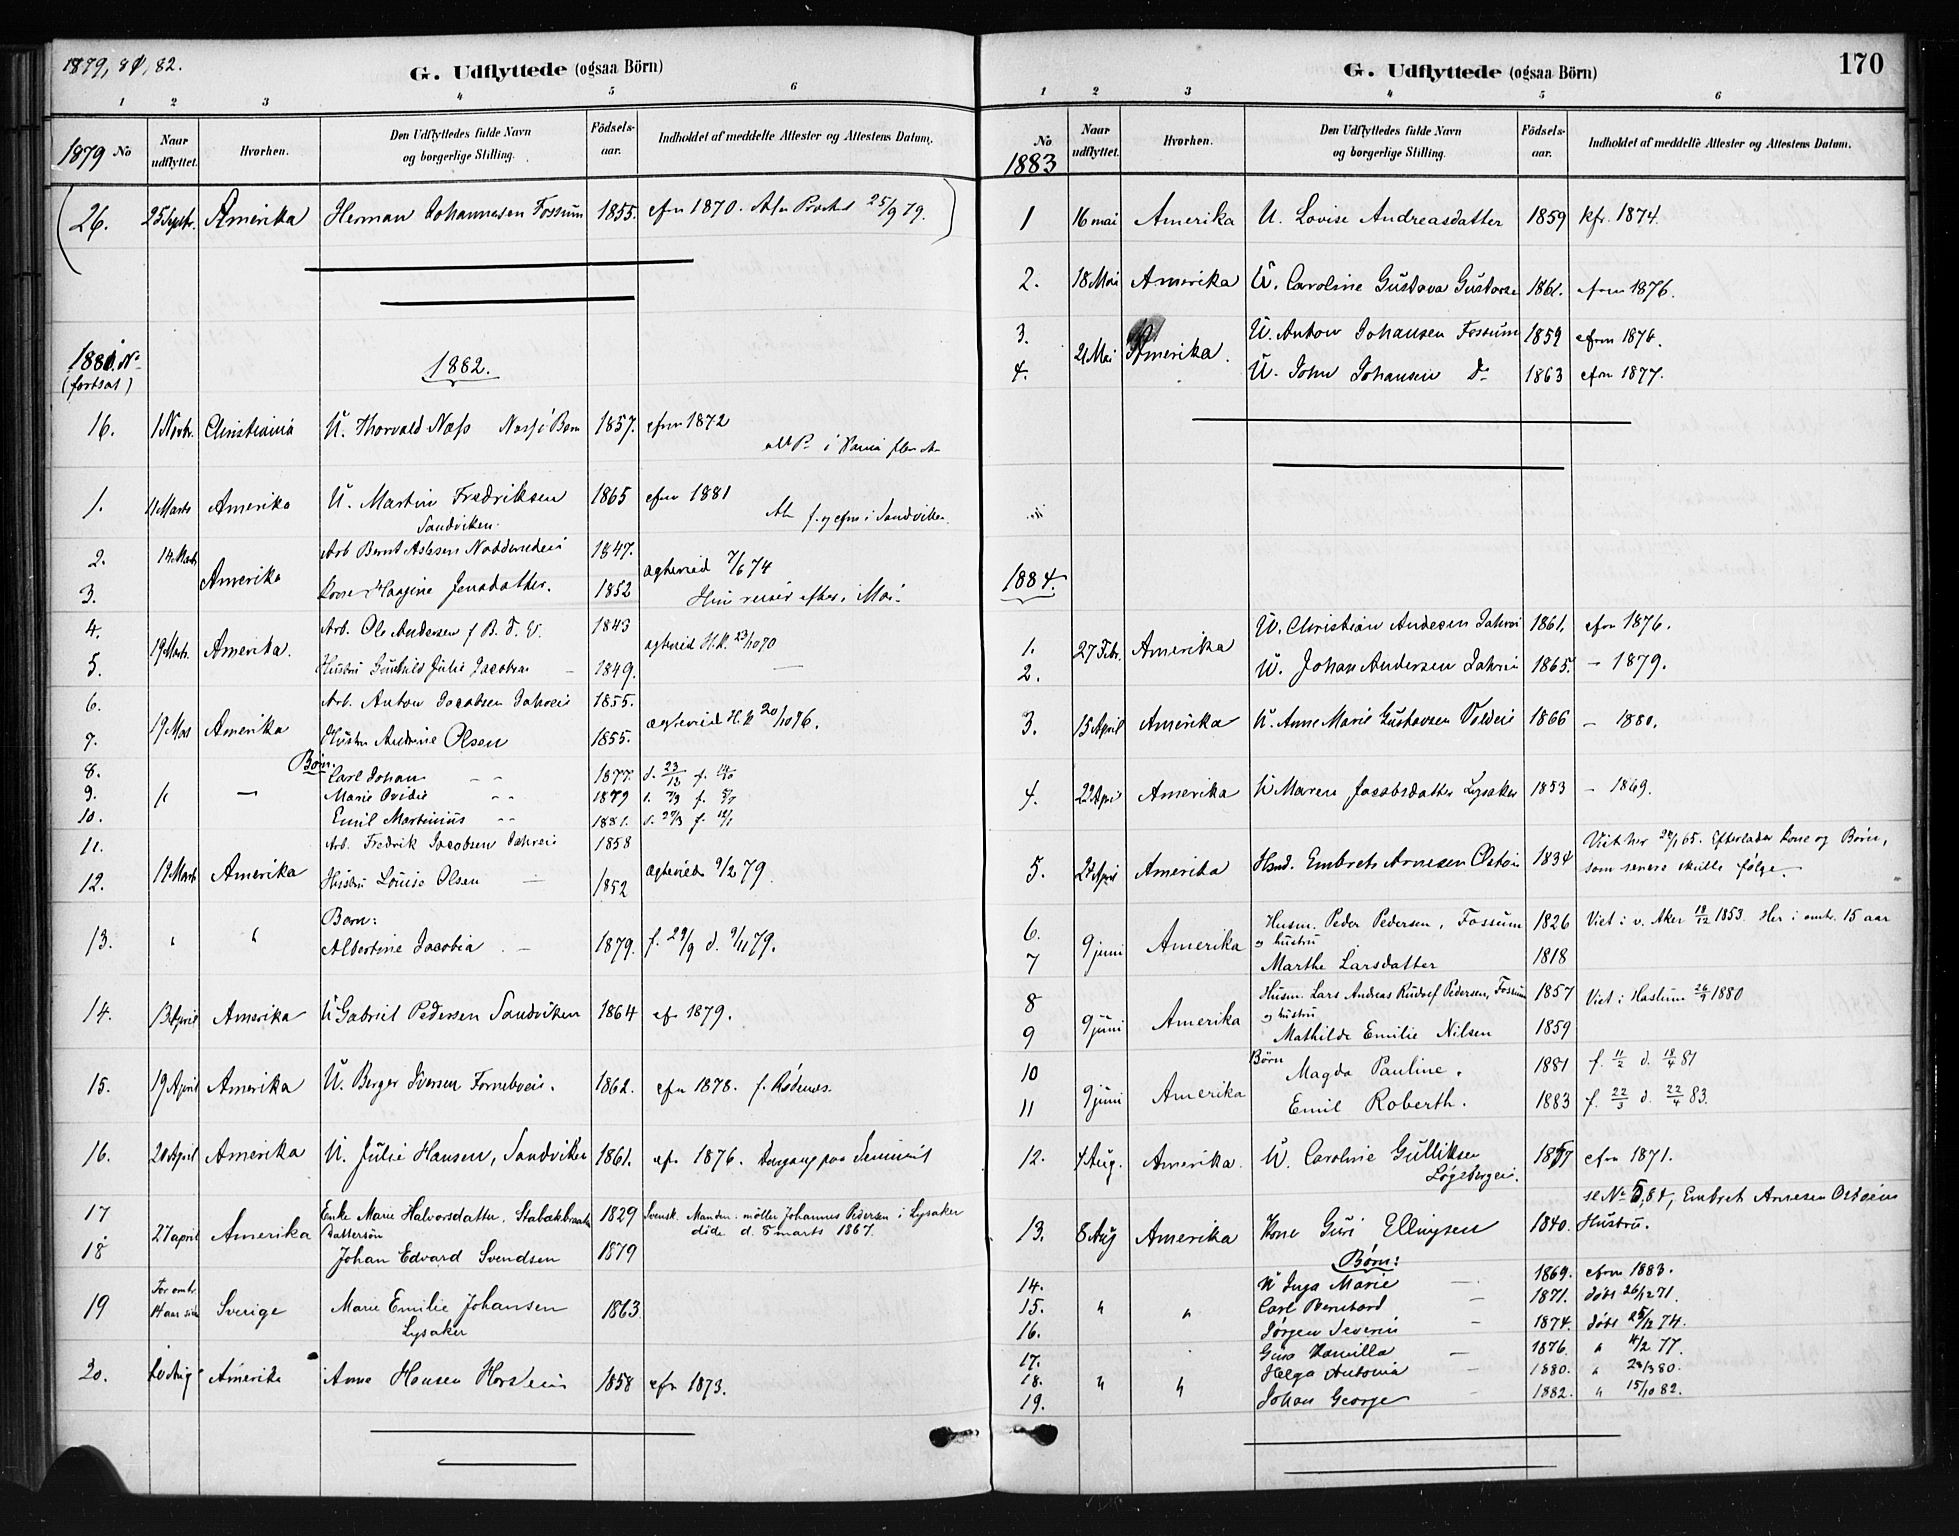 1879, 81, 82.
G. Udflyttede (ogsaa Börn)
1 2 3 4 5 6
1879 No Naar udflyttet. Hvorhen. Den Udflyttedes fulde Navn og borgerlige Stilling. Födsels-aar. Indholdet af meddelte Attester og Attestens Datum.
26. 25 Septr. Amerika Herman Johannesen Fossum 1855. cfn 1870. 25/9 79.
1881 No (fortsat) 1882.
16. 1 Novbr. Christiania U. Thorvald Næss 1857. cfn 1872
1. 11 Marts Amerika U. Martin Fredriksen 1865 cfn 1881
Sandviken. i Sandviken
2. 14 Marts Arb Bernt Aslesen 1847.
Amerika ægteviet 7/6 74
3. Kone Haagine Jensdatter. 1852
4. Arb. Ole Andersen f B. 1843
19 Marts. Amerika. ægteviet 23/10 70
5. Hustru Gunhild Julie Jacobsen — 1849. —
6. Arb. Anton Jacobsen Jahrei 1855.
19 Mars Amerika ægteviet H.k 20/10 76.
7. Hustru Andrine Olsen 1855.
Børn.
8. Carl Johan 1877. d. 23/12 f.
9. " — Marie 1879
10. Emil Martinius 1881.
11. Arb. Fredrik Jacobsen Jahrei 1858
19 Marts Amerika
12. Hustru Louise Olsen — 1852 ægteviet 9/2 79
Barn:
13. " " Albertine Jacobia — 1879. f. 29/9 d. 9/11 79.
14. 13 April Amerika U Gabriel Pedersen Sandviken 1864 cf 1879.
15. 19 April Amerika U. Berger Iversen Fornebuei. 1862. cfn 1878. f. Rødenæs.
16. 20 April Amerika U. Julie Hansen, Sandviken 1861. cfn 1876.
17 Enke Marie Halvorsdatter. Stabækbraaten 1829 Svensk. Manden: möller Johannes Pedersen i Lysaker
27 april Amerika Dattersön döde d. 5 marts 1867.
18 Johan Edvard Svendsen 1879
19 For omtr. 14 aar siden Sverige Marie Emilie Johansen 1863
Lysaker
20. Amerika Anne Hansen 1858 cfn 1873.
G. Udflyttede (ogsaa Börn) 170
1 2 3 4 5 6
No 1883 Naar udflyttet. Hvorhen. Den Udflyttedes fulde Navn og borgerlige Stilling. Födsels-aar. Indholdet af meddelte Attester og Attestens Datum.
1 16 mai Amerika U. Lovise Andreasdatter 1859 kfr. 1874.
2. 18 Mai Amerika U. Caroline Gustava 1861. cfrm 1876.
3. U. Anton Johansen Fossum 1859 cfrm 1876.
21 Mai Amerika.
4. U. John Johansen Do 1863 cfrm 1877.
1884.
1. U. Christian Andersen Jahrei 1861. cfrm 1876.
27 Febr. Amerika
2. U. Johan Andersen Jahrei 1865. — 1879.
3. 15 April Amerika U. Anne Marie Gustavsen 1866 — 1880.
4. 22 April Amerika U Maren Jacobsdatter Lysaker 1853 — 1869.
5. 22 April Amerika Husd. Embret Arnesen Ostøen 1834 Viet her 28/1 65. Efterlader Kone og Børn,
som senere skulle følge.
6. Husm. Peder Pedersen, Fossum 1826 Viet i v. Aker 18/12 1853. Her i omtr. 15 aar
9 juni Amerika og hustru
7 Marthe Larsdatter 1818
8 Husm. Lars Andreas Rudolf Pedersen, Fossum 1857 Viet i Haslum 26/9 1880
9 juni Amerika og hustru
9 Mathilde Emilie Nilsen 1859
Børn
10 Magda Pauline. 1881 f. 11/2 d. 18/4 81
9 juni Amerika
11 Emil Roberth. 1883 f. 22/3 d. 22/4 83.
12. 4 Aug. Amerika. U. Caroline Gulliksen 1857 cfrm 1871.
Løgebergei.
se No 5, 84, Embret Arnesen Ostøens
13. 8 Aug Amerika Kone Guri Ellingsen 1840. Hustru.
Børn:
14. U Inga Marie — 1869. cfrm 1883.
15. " " Carl Bernhard — 1871. döbt 26/12 71.
16. Jörgen Severin — 1874. döbt 25/12 74.
17. Gina Kamilla — 1876. " 4/2 77.
18. " " Helga Antonia — 1880. " 28/3 80.
19. Johan George — 1882. " 15/10 82.